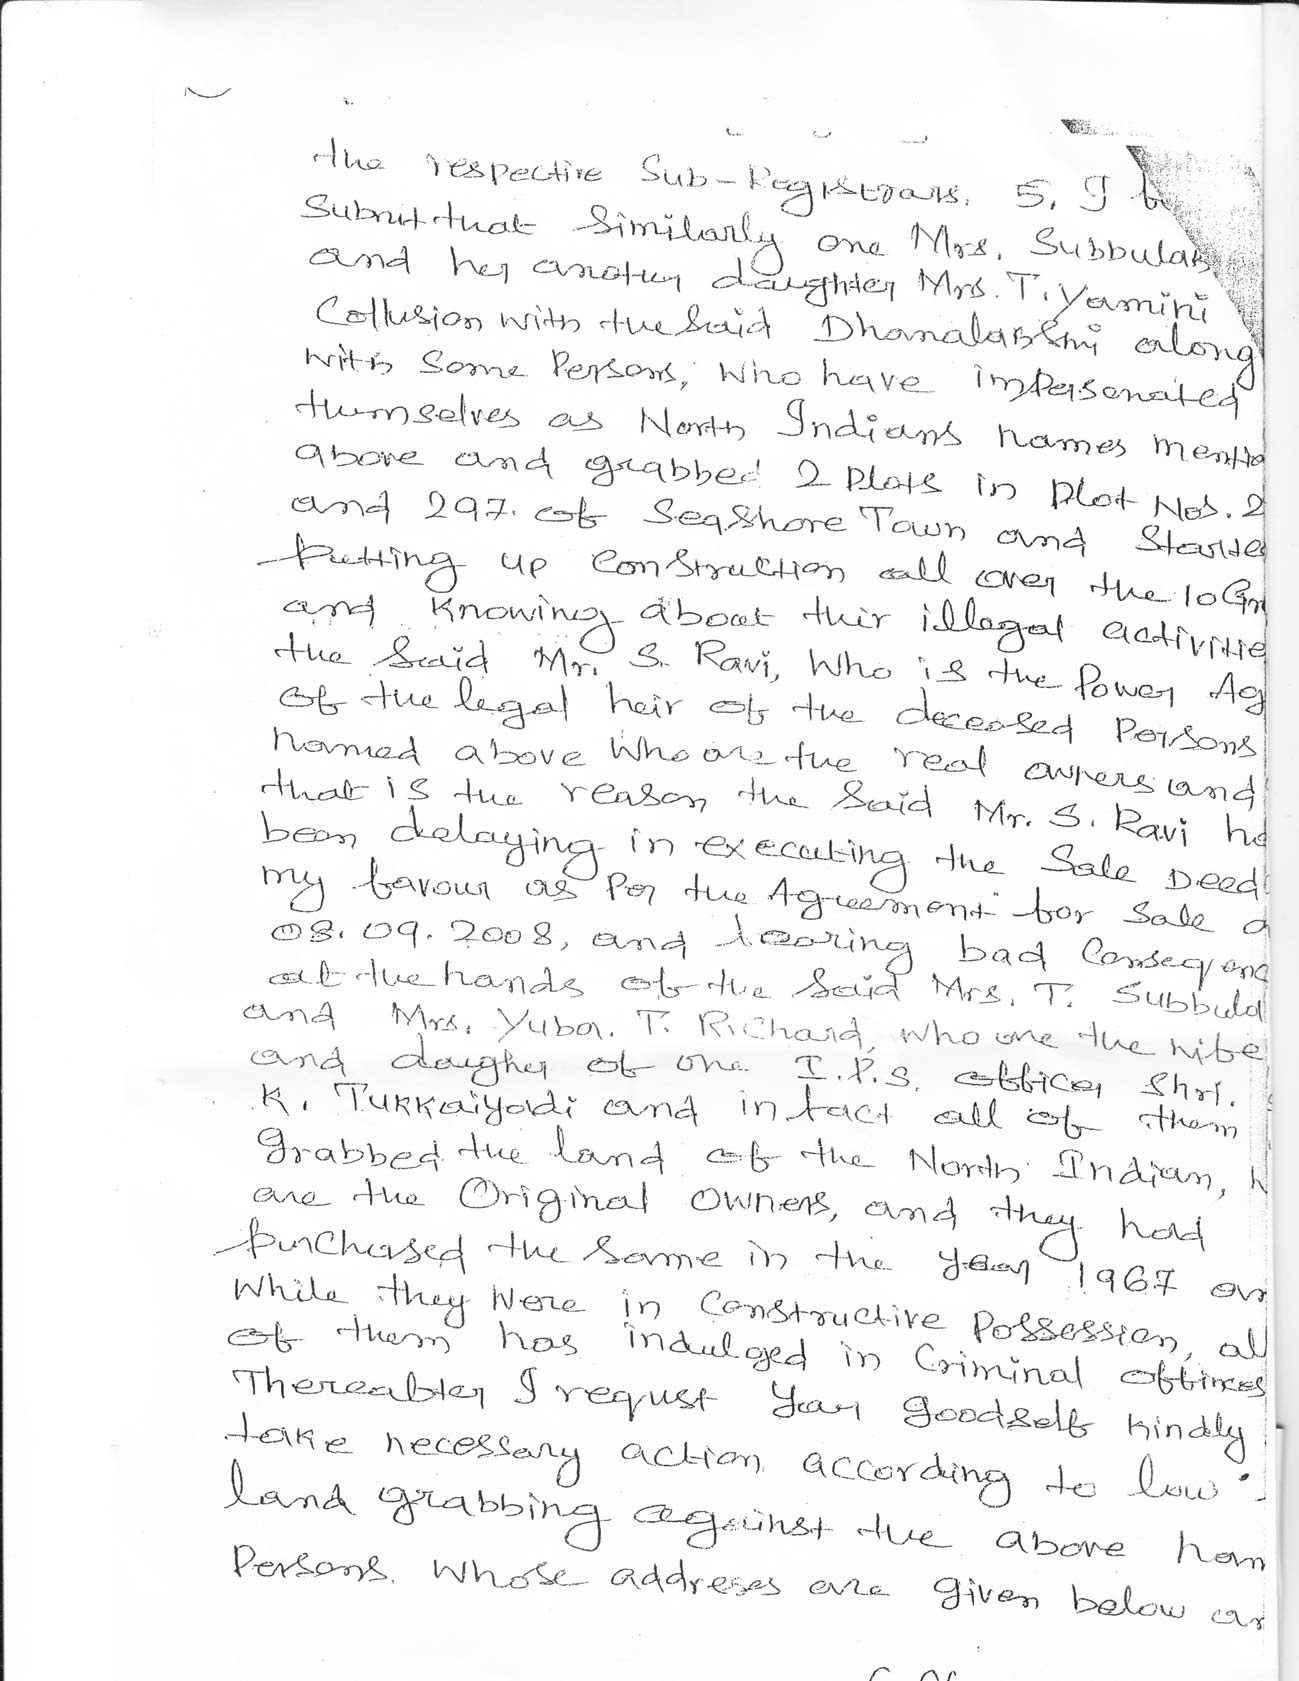 the respective Sub-Registrars. 5. I b
Submit that Similarly one Mrs. Subbulak
and her another daughter Mrs. T. Yamini
Collusion with the Said Dhanalakshmi along
with Some Persons, Who have impersonated
themselves as North Indians names mentio
above and grabbed 2 Plots in Plot Nos. 2
and 297. of Seashore Town and Starte
Putting up Construction all over the 10 Gr
and knowing about thir illegal activitie
the Said Mr. S. Ravi, Who is the Power Ag
of the legal heir of the deceased Persons
named above Who are the real owners and
that is the reason the Said Mr. S. Ravi ha
been delaying in executing the Sale Deed
my favour as Per the Agreement for Sale d
08.09.2008, and fearing bad Consequenc
at the hands of the Said Mrs. T. Subbula
and Mrs. Yuba. T. Richard, who are the wife
and daugher of one I.P.S. officer Shri.
K. Tukkaiyadi and in fact all of them
Grabbed the land of the North Indian, w
are the Original owners, and they had
Purchased the Same in the year 1967 an
While they Were in Constructive Possession, al
of them has indulged in Criminal offinces
Thereafter I requst your goodself kindly
take necessary action according to law
land grabbing against the above nam
Persons. Whose addreses are given below an